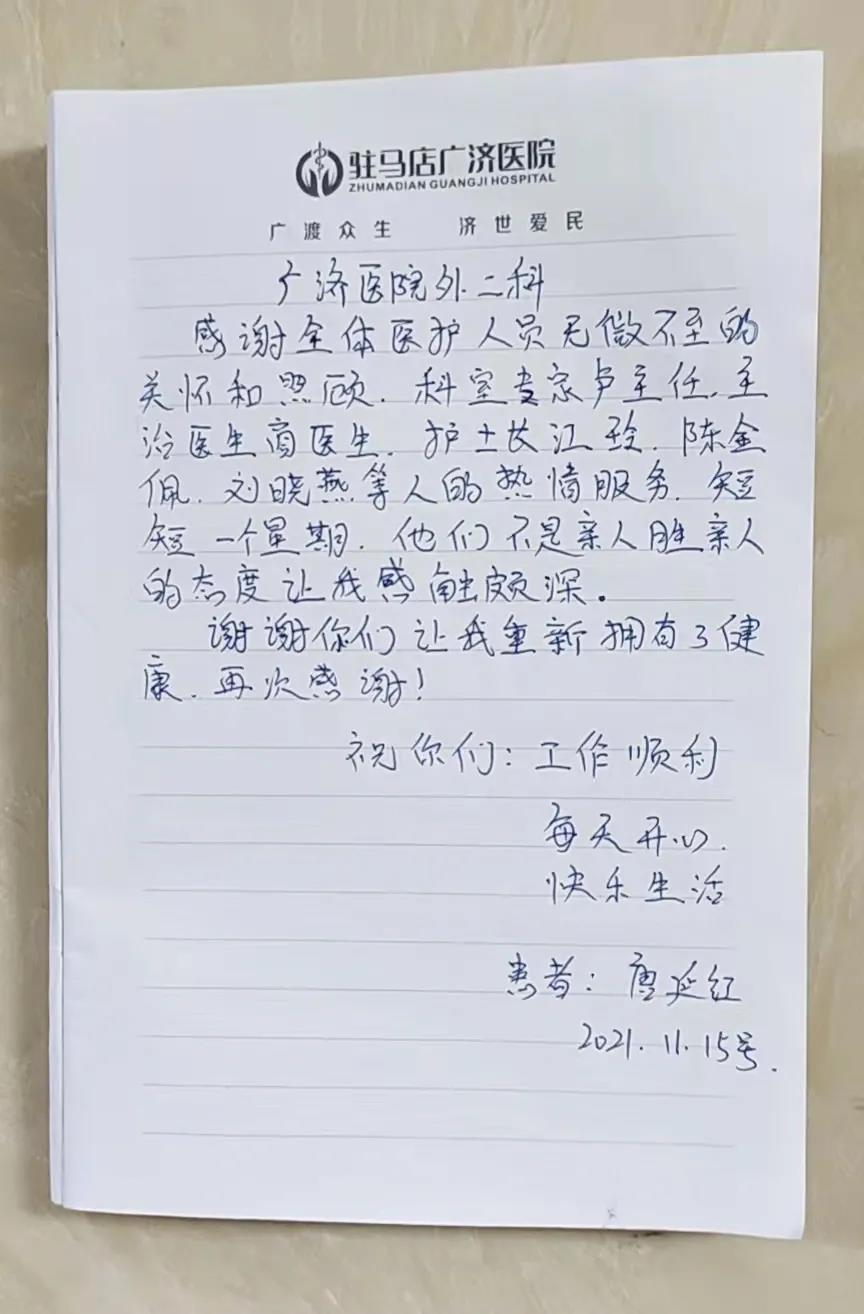 驻马店广济医院
ZHUMADIAN GUANGJI HOSPITAL
广渡众生 济世爱民
广济医院外二科
感谢全体医护人员无微不至的
关怀和照顾. 科室专家卢主任、主
治医生商医生. 护士长江玲. 陈金
佩. 刘晓燕等人的热情服务. 短
短一个星期. 他们不是亲人胜亲人
的态度让我感触颇深。
谢谢你们让我重新拥有了健
康. 再次感谢!
祝你们: 工作顺利
每天开心.
快乐生活
患者: 唐延红
2021. 11. 15号.